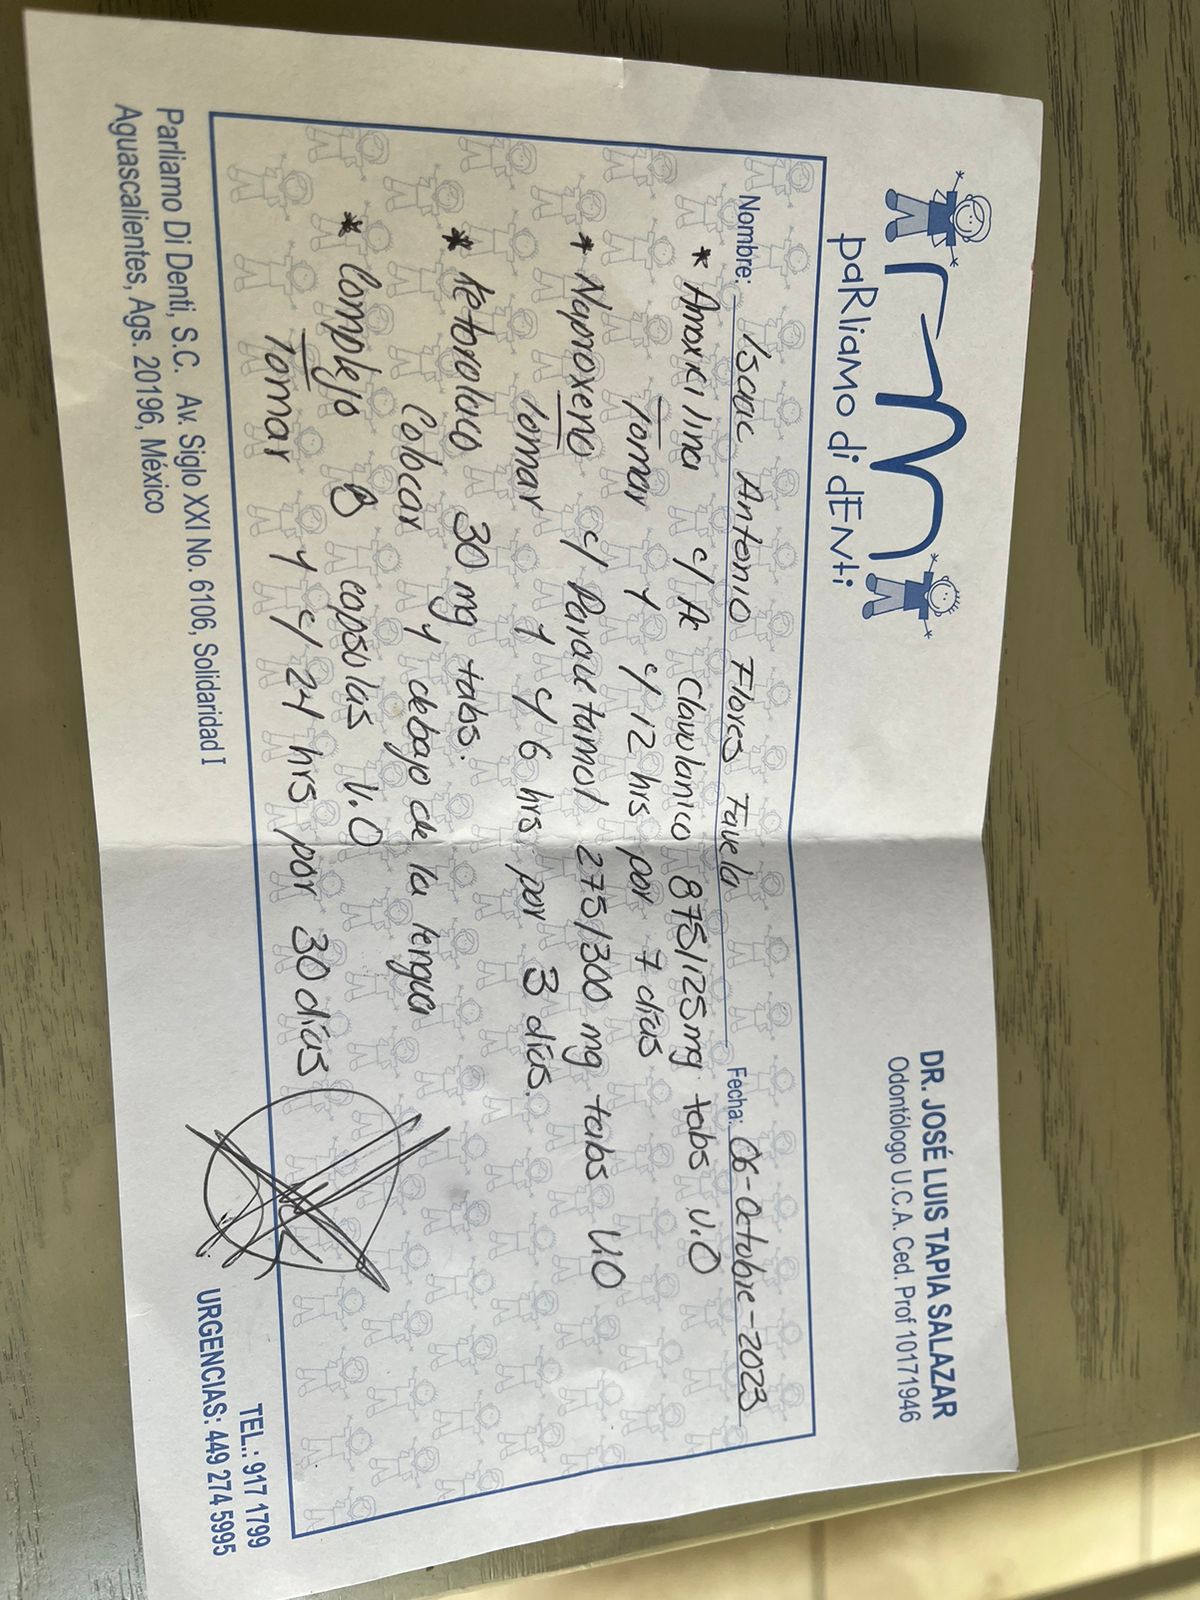 paRliamo di dENti
DR. JOSÉ LUIS TAPIA SALAZAR
Odontólogo U.C.A. Ced. Prof 10171946
Nombre: Isaac Antonio Flores Favela Fecha: 06-Octubre-2023
* Amoxicilina c/ Ac Clavulanico 875/125mg tabs V.O
Tomar 1 c/ 12 hrs por 7 días
* Naproxeno c/ Paracetamol 275/300 mg tabs V.O
Tomar 1 c/ 6 hrs por 3 días.
* Ketorolaco 30 mg tabs.
Colocar 1 debajo de la lengua
* Complejo B capsulas V.O
Tomar 1 c/ 24 hrs por 30 días
Parliamo Di Denti, S.C. Av. Siglo XXI No. 6106, Solidaridad I
Aguascalientes, Ags. 20196, México
TEL.: 917 1799
URGENCIAS: 449 274 5995